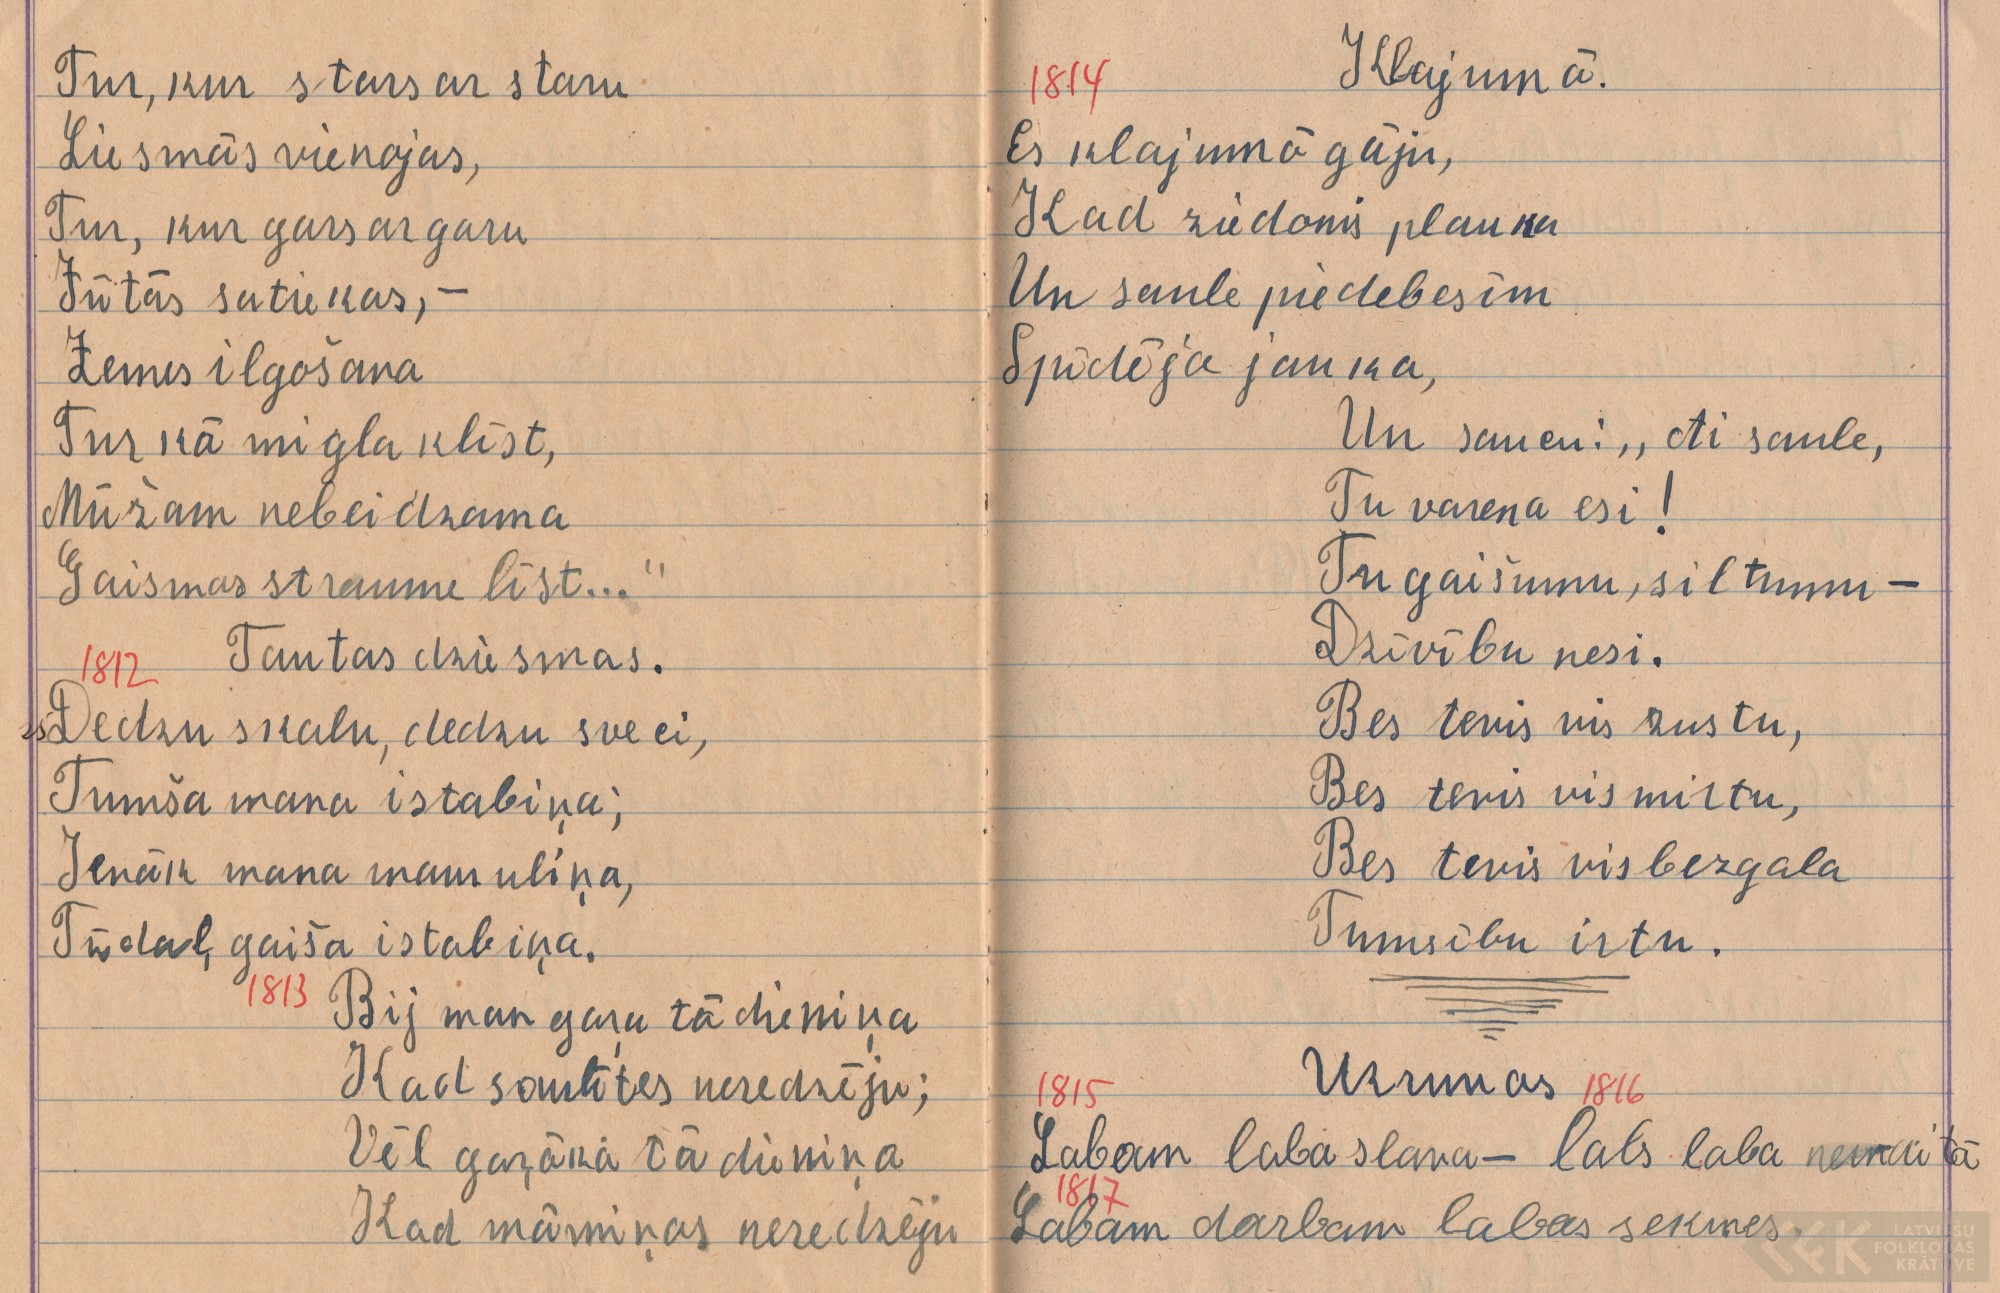 Tur, kur stars ar staru
Liesmās vienojas,
Tur, kur gars ar garu
Jūtās satiekas, –
Zemes ilgošana
Tur kā migla klīst,
Mūžam nebeidzama
Gaismas straume līst..."
1812 Tautas dziesmas.
Dedzu skalu, dedzu sveci,
Tumša mana istabiņa;
Ienāk mana mamuliņa,
Tūdaļ gaiša istabiņa.
1813 Bij man gaŗa tā dieniņa
Kad saulītes neredzēju;
Vēl gaŗāka tā dieniņa
Kad māmiņas neredzēju
1814 Klajumā.
Es klajumā gāju,
Kad ziedonis plauka
Un saule pie debesīm
Spīdēja jauka,
Un saucu: „Ai saule,
Tu varena esi!
Tu gaišumu, siltumu –
Dzīvību nesi.
Bes tevis vis zustu,
Bes tevis vis mirtu,
Bes tevis vis bezgala
Tumsību irtu.
Uzrunas
1815 1816
Labam laba slava – labs laba
1817
Labam darbam labas sekmes.
LATVIEŠU
FOLKLORAS
KRĀTUVE